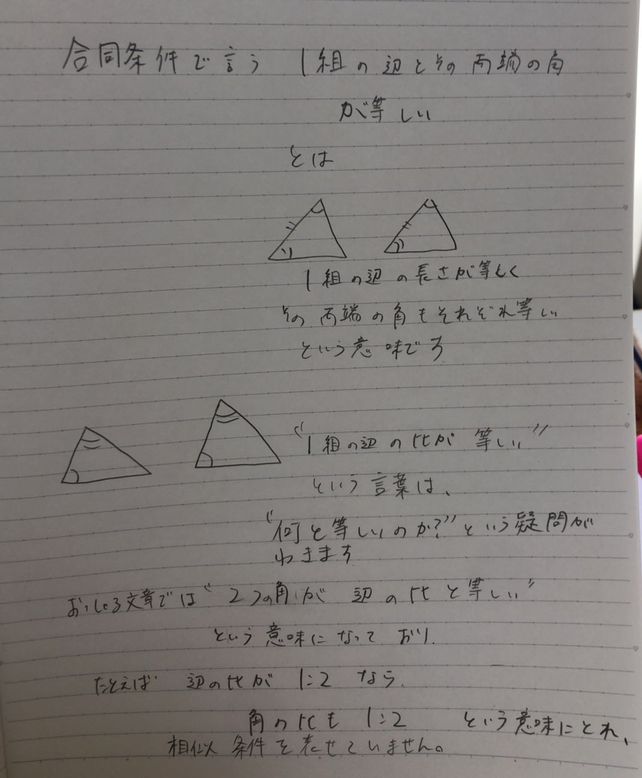 合同条件で言う 1組の辺とその両端の角
が等しい
とは
1組の辺の長さが等しく
その両端の角もそれぞれ等しい
という意味です
"1組の辺の比が等しい"
という言葉は、
"何と等しいのか?"という疑問が
わきます
おっしゃる文章では"2つの角が 辺の比と等しい"
という意味になっており、
たとえば 辺の比が 1:2 なら、
角の比も 1:2 という意味にとれ、
相似条件を表せていません。